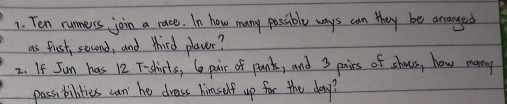 1. Ten runners join a race. In how many possible ways can they be arranged
as first, second, and third placer?
2. If Jun has 12 T-shirts, 6 pair of pants, and 3 pairs of shoes, how many
possibilities can he dress himself up for the day?